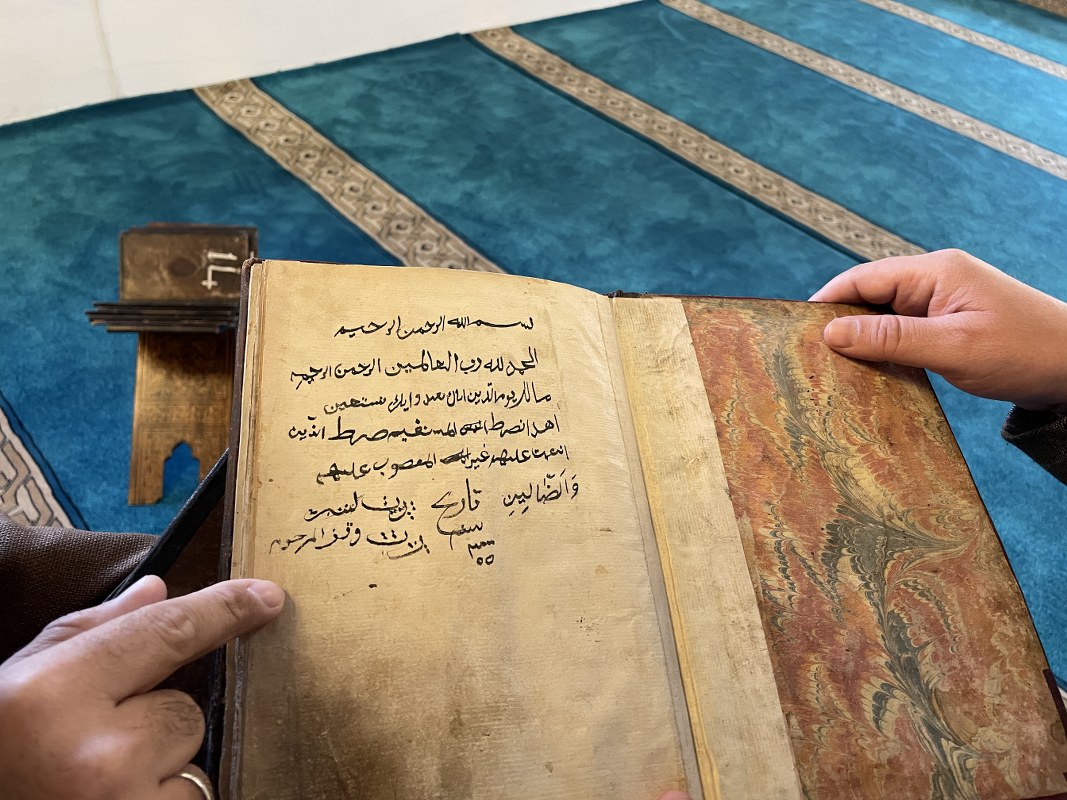 بسم الله الرحمن الرحيم
الحمد لله رب العالمين الرحمن الرحيم
مالك يوم الدين اياك نعبد و اياك نستعين
اهدنا صرط المستقيم صرط الذين
انعمت عليهم غير المغضوب عليهم
وَالضَّالِين تاريخ
وقف المرحوم
14